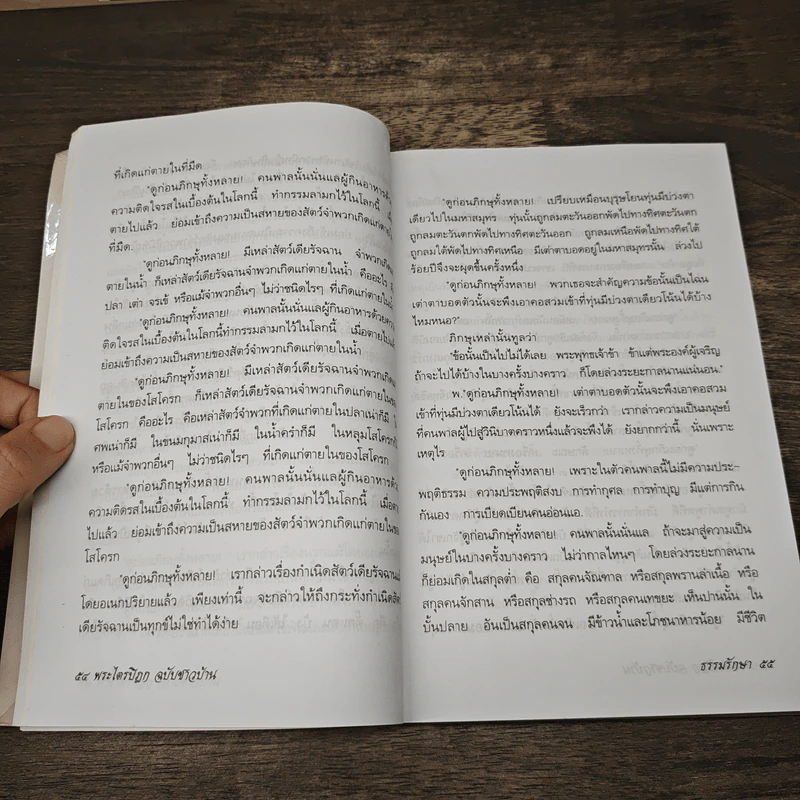 ที่เกิดแก่ตายในที่มืด
"ดูก่อนภิกษุทั้งหลาย! คนพาลนั้นนั่นแลผู้กินอาหารด้วย
ความติดใจรสในเบื้องต้นในโลกนี้ ทำกรรมลามกไว้ในโลกนี้
ตายไปแล้ว ย่อมเข้าถึงความเป็นสหายของสัตว์จำพวกเกิดแก่ตาย
ที่มืด
"ดูก่อนภิกษุทั้งหลาย! มีเหล่าสัตว์เดียรัจฉาน จำพวกเกิดแก่
ตายในน้ำ ก็เหล่าสัตว์เดียรัจฉานจำพวกเกิดแก่ตายในน้ำ คืออะไร
ปลา เต่า จรเข้ หรือแม้จำพวกอื่นๆ ไม่ว่าชนิดไรๆ ที่เกิดแก่ตายในน้ำ
"ดูก่อนภิกษุทั้งหลาย! คนพาลนั้นนั่นแลผู้กินอาหารด้วยความ
ติดใจรสในเบื้องต้นในโลกนี้ทำกรรมลามกไว้ในโลกนี้ เมื่อตายไป
ย่อมเข้าถึงความเป็นสหายของสัตว์จำพวกเกิดแก่ตายในน้ำ
"ดูก่อนภิกษุทั้งหลาย! มีเหล่าสัตว์เดียรัจฉานจำพวกเกิดแก่
ตายในของโสโครก ก็เหล่าสัตว์เดียรัจฉานจำพวกเกิดแก่ตายในของ
โสโครก คืออะไร คือเหล่าสัตว์จำพวกที่เกิดแก่ตายในปลาเน่าก็มี ใน
ศพเน่าก็มี ในขนมกุมาสเน่าก็มี ในน้ำครำก็มี ในหลุมโสโครกก็มี
หรือแม้จำพวกอื่นๆ ไม่ว่าชนิดไรๆ ที่เกิดแก่ตายในของโสโครก
"ดูก่อนภิกษุทั้งหลาย! คนพาลนั้นนั่นแลผู้กินอาหารด้วย
ความติดรสในเบื้องต้นในโลกนี้ ทำกรรมลามกไว้ในโลกนี้ เมื่อตาย
ไปแล้ว ย่อมเข้าถึงความเป็นสหายของสัตว์จำพวกเกิดแก่ตายในของ
โสโครก
"ดูก่อนภิกษุทั้งหลาย! เรากล่าวเรื่องกำเนิดสัตว์เดียรัจฉานแม้
โดยอเนกปริยายแล้ว เพียงเท่านี้ จะกล่าวให้ถึงกระทั่งกำเนิดสัตว์
เดียรัจฉานเป็นทุกข์ไม่ใช่ทำได้ง่าย
๕๔ พระไตรปิฎก ฉบับชาวบ้าน
"ดูก่อนภิกษุทั้งหลาย! เปรียบเหมือนบุรุษโยนทุ่นมีบ่วงตา
เดียวไปในมหาสมุทร ทุ่นนั้นถูกลมตะวันออกพัดไปทางทิศตะวันตก
ถูกลมตะวันตกพัดไปทางทิศตะวันออก ถูกลมเหนือพัดไปทางทิศใต้
ถูกลมใต้พัดไปทางทิศเหนือ มีเต่าตาบอดอยู่ในมหาสมุทรนั้น ล่วงไป
ร้อยปีจึงจะผุดขึ้นครั้งหนึ่ง
"ดูก่อนภิกษุทั้งหลาย! พวกเธอจะสำคัญความข้อนั้นเป็นไฉน
เต่าตาบอดตัวนั้นจะพึงเอาคอสวมเข้าที่ทุ่นมีบ่วงตาเดียวโน้นได้บ้าง
ไหมหนอ?"
ภิกษุเหล่านั้นทูลว่า
"ข้อนั้นเป็นไปไม่ได้เลย พระพุทธเจ้าข้า ข้าแต่พระองค์ผู้เจริญ
ถ้าจะไปได้บ้างในบางครั้งบางคราว ก็โดยล่วงระยะกาลนานแน่นอน."
พ."ดูก่อนภิกษุทั้งหลาย! เต่าตาบอดตัวนั้นจะพึงเอาคอสวม
เข้าที่ทุ่นมีบ่วงตาเดียวโน้นได้ ยังจะเร็วกว่า เรากล่าวความเป็นมนุษย์
ที่คนพาลผู้ไปสู่วินิบาตคราวหนึ่งแล้วจะพึงได้ ยังยากกว่านี้ นั่นเพราะ
เหตุไร
"ดูก่อนภิกษุทั้งหลาย! เพราะในตัวคนพาลนี้ไม่มีความประ-
พฤติธรรม ความประพฤติสงบ การทำกุศล การทำบุญ มีแต่การกิน
กันเอง การเบียดเบียนคนอ่อนแอ.
"ดูก่อนภิกษุทั้งหลาย! คนพาลนั้นนั่นแล ถ้าจะมาสู่ความเป็น
มนุษย์ในบางครั้งบางคราว ไม่ว่ากาลไหนๆ โดยล่วงระยะกาลนาน
ก็ย่อมเกิดในสกุลต่ำ คือ สกุลคนจัณฑาล หรือสกุลพรานล่าเนื้อ หรือ
สกุลคนจักสาน หรือสกุลช่างรถ หรือสกุลคนเทขยะ เห็นปานนั้น ใน
บั้นปลาย อันเป็นสกุลคนจน มีข้าวน้ำและโภชนาหารน้อย มีชีวิต
ธรรมรักษา ๕๕